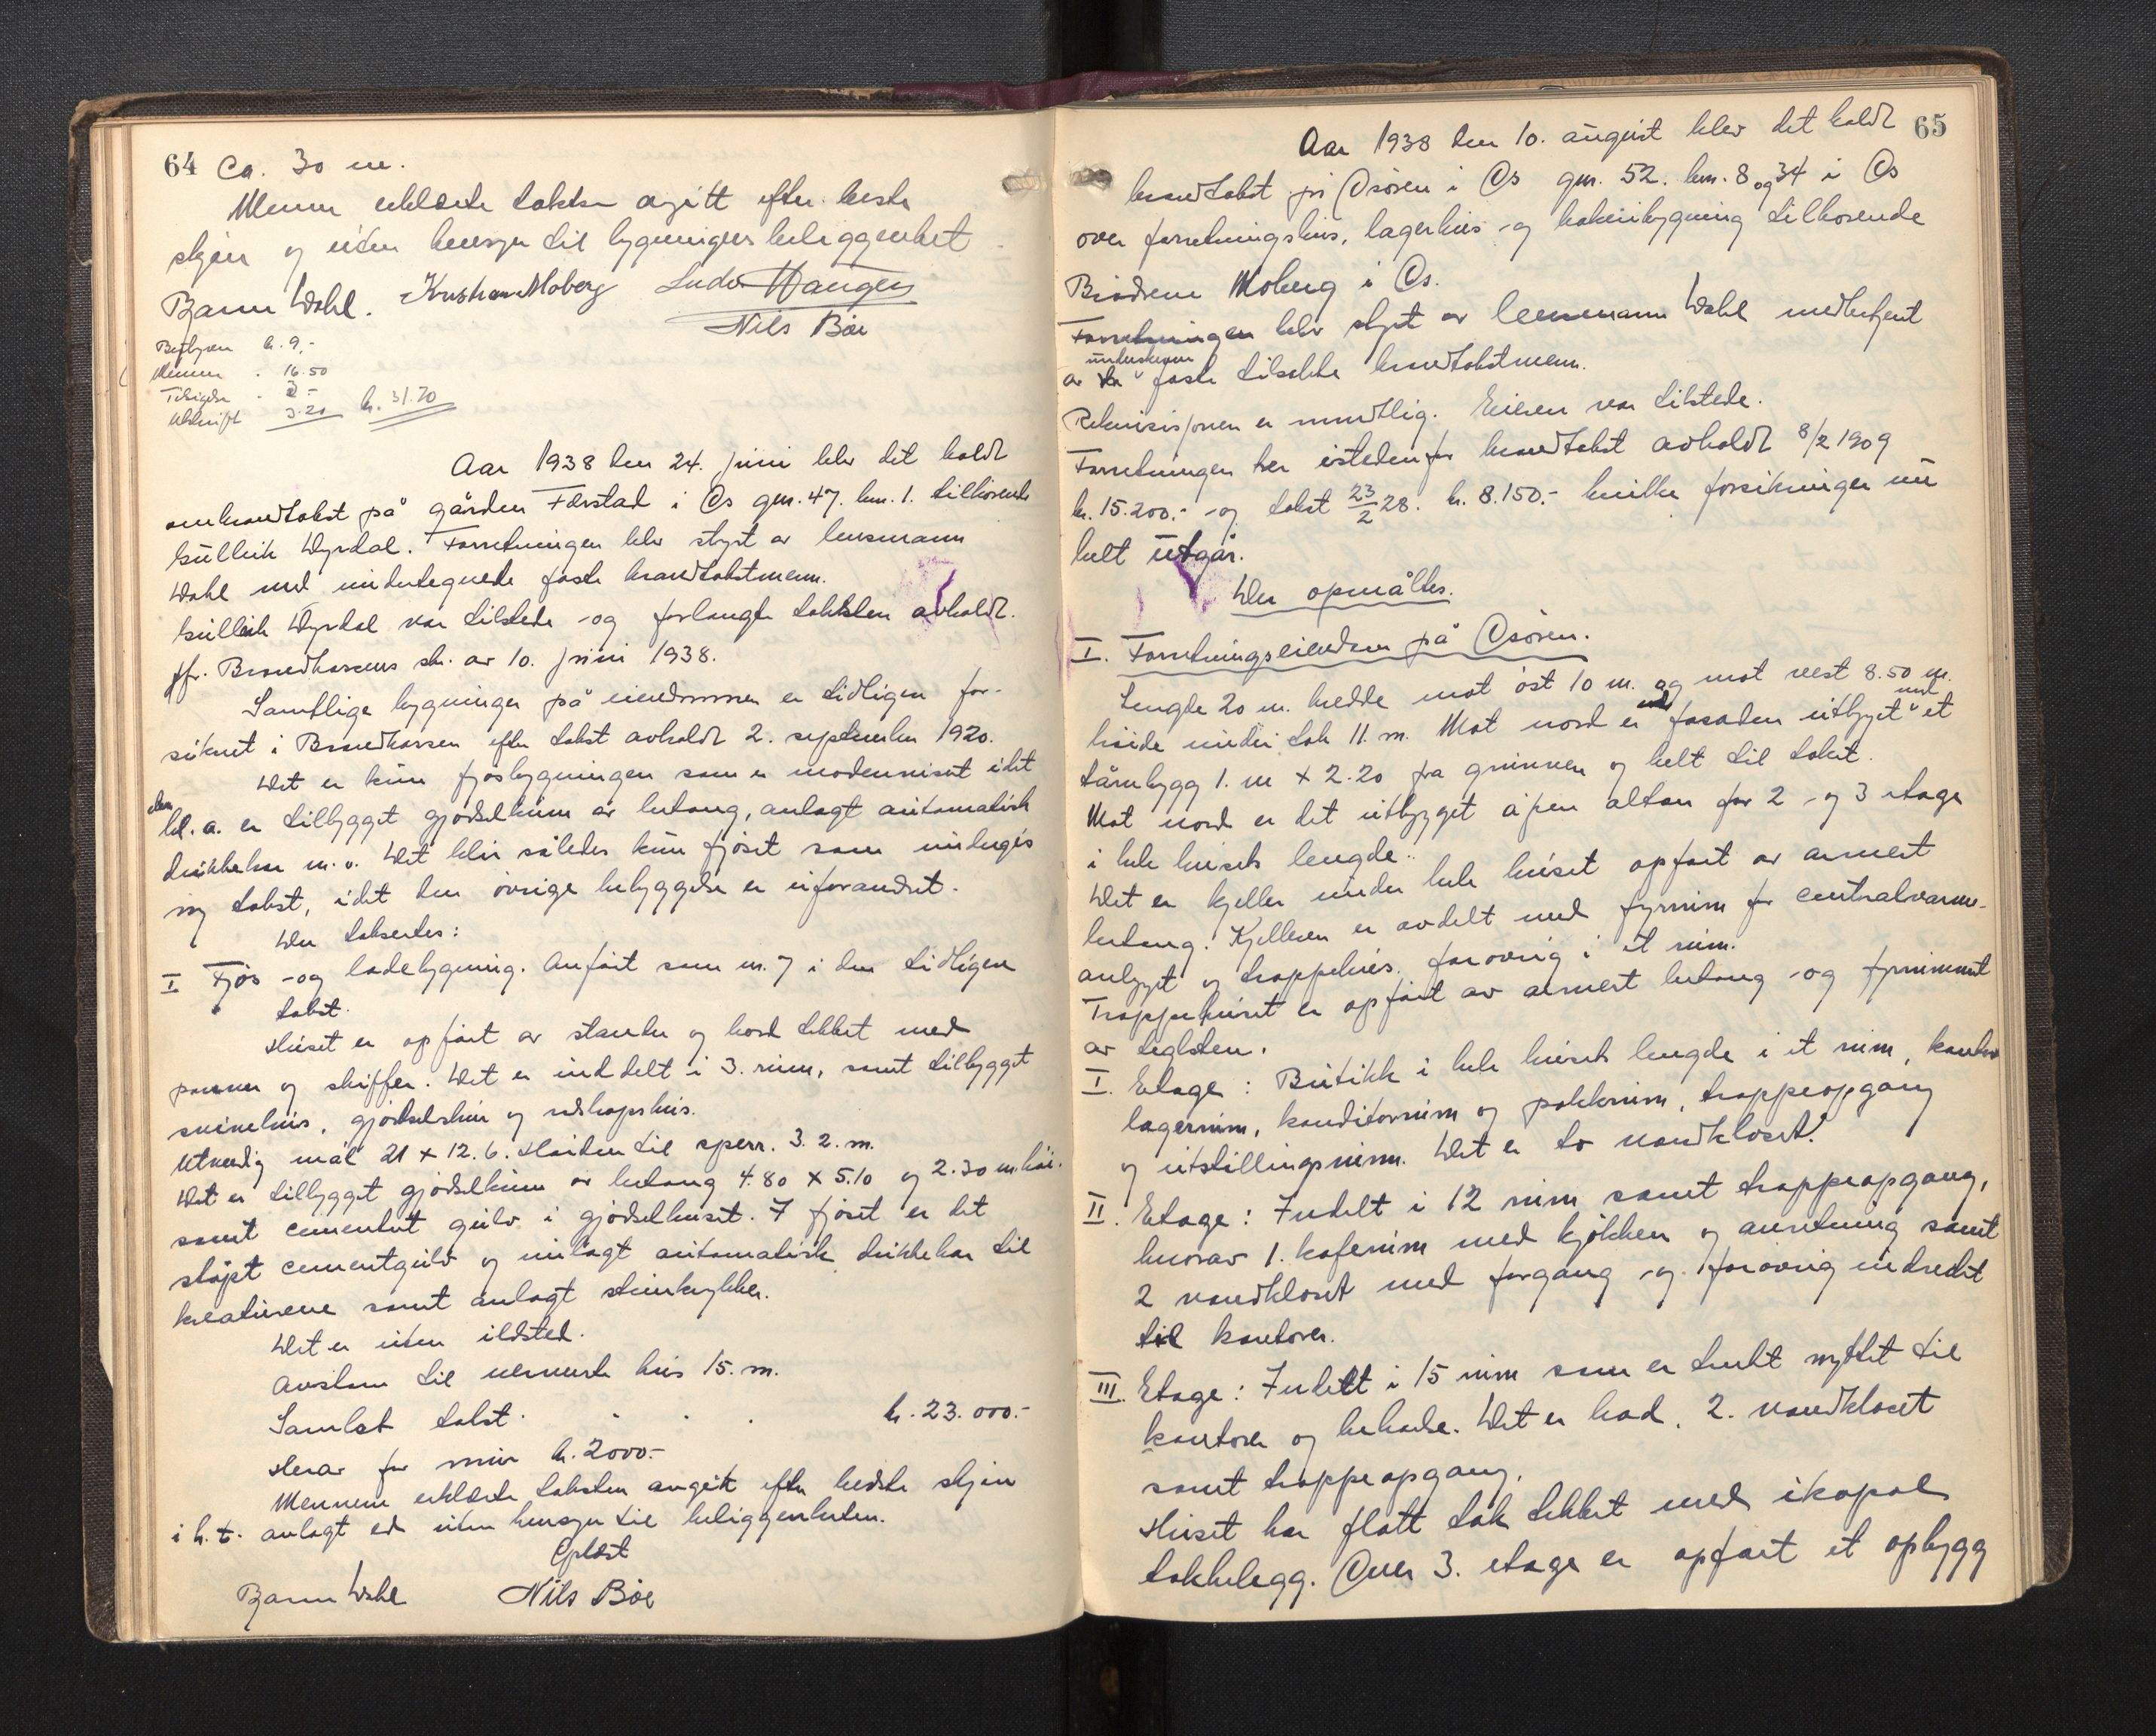 64 Ca. 30 m.
Mennene erklærte taksten avgitt efter beste
skjøn og uten hensyn til bygningens beliggenhet
Bjarne Wahl. Kristian Moberg Ludv Haugen
Nils Bøe
kr. 9,-
Mennene . 16.50
Tilsigelse . 3 -
Utskrift 3.20 kr. 31.70
Aar 1938 den 24. juni blev det holdt
ombrandtakst på gården Færstad i Os gnr. 47. bnr. 1. tilhørende
Gullik Dyrdal. Forretningen blev styrt av lensmann
Wahl med undertegnede faste brandtakstmenn.
Gullik Dyrdal var tilstede og forlangte taksten avholdt.
jfr. Brandkassens skr. av 10. juni 1938.
Samtlige bygninger på eiendommen er tidligere for-
sikret i Brandkassen efter takst avholdt 2. september 1920.
Det er kun fjøsbygningen som er modernisert idet
den
bl.a. er tilbygget gjødselkum av betong, anlagt automatisk
drikkekar m.v. Det blir således kun fjøset som undergis
ny takst, idet den øvrige bebyggelse er uforandret.
Der takseres:
I Fjøs - og ladebygning. Anført som nr. 7 i den tidligere
takst.
Huset er opført av stander og bord tekket med
panner og skiffer. Det er inddelt i 3. rum, samt tilbygget
svinehus, gjødselshus og redskapshus.
Utvendig mål 21 x 12.6. Høiden til sperr. 3.2. m.
Det er tilbygget gjødselkum av betong 4.80 x 5.10 og 2.30 m. høi.
samt cementert gulv i gjødselhuset. I fjøset er det
støpt cementgulv og innlagt automatisk drikkekar til
kreaturene samt anlagt
Det er uten ildsted.
Avstand til nermeste hus 15. m.
Samlet takst . . . . kr. 23.000.-
Herav for mur kr. 2000.-
Mennene erklærte taksten avgitt efter bedste skjøn
i h.t. avlagt ed uten hensyn til beliggenheten.
Oplæst
Bjarne Wahl Nils Bøe
65
Aar 1938 den 10. august blev det holdt
brandtakst på Osøren i Os gnr. 52. bnr. 8 og 34 i Os
over forretningshus, lagerhus og bakeribygning tilhørende
Brødrene Moberg i Os.
Forretningen blev styrt av lensmann Wahl medbetjent
underskrevne
av de faste tilsatte brandtakstmenn.
Rekvisisjonen er mundtlig. Eieren var tilstede.
Forretningen her istedenfor brandtakst avholdt 8/2 1909
kr. 15.200.- og takst 23/2 28. kr. 8.150.- hvilke forsikringer nu
helt utgår.
Der opmåltes.
I. Forretningseiendom på Osøren.
Lengde 20 m. bredde mot øst 10 m. og mot vest 8.50 m.
med
høide under tak 11. m. Mot nord er fasaden utbyget et
tårnbygg 1. m x 2.20 fra grunnen og helt til taket.
Mot nord er det utbygget åpen altan for 2 og 3 etage
i hele husets lengde.
Det er kjeller under hele huset opført av armert
betong. Kjelleren er avdelt med fyrrum for centralvarme-
anlegget og trappehus, forøvrig i et rum.
Trappehuset er opført av armert betong og fyrrummet
av teglsten.
I. Etage: Butikk i hele husets lengde i et rum, kontor
lagerrum, konditorrum og pakkrum, trappeopgang
og utstillingsrum. Det er to vandkloset.
II. Etage: Indelt i 12 rum samt trappeopgang,
hvorav 1. kaferum med kjøkken og anretning samt
2 vandkloset med forgang og forøvrig indredet
til kontorer.
III. Etage: Indelt i 15 rum som er tenkt nyttet til
kontorer og beboelse. Det er bad, 2. vandkloset
samt trappeopgang.
Huset har flatt tak tekket med ikopal
takbelegg. Over 3. etage er opført et opbygg